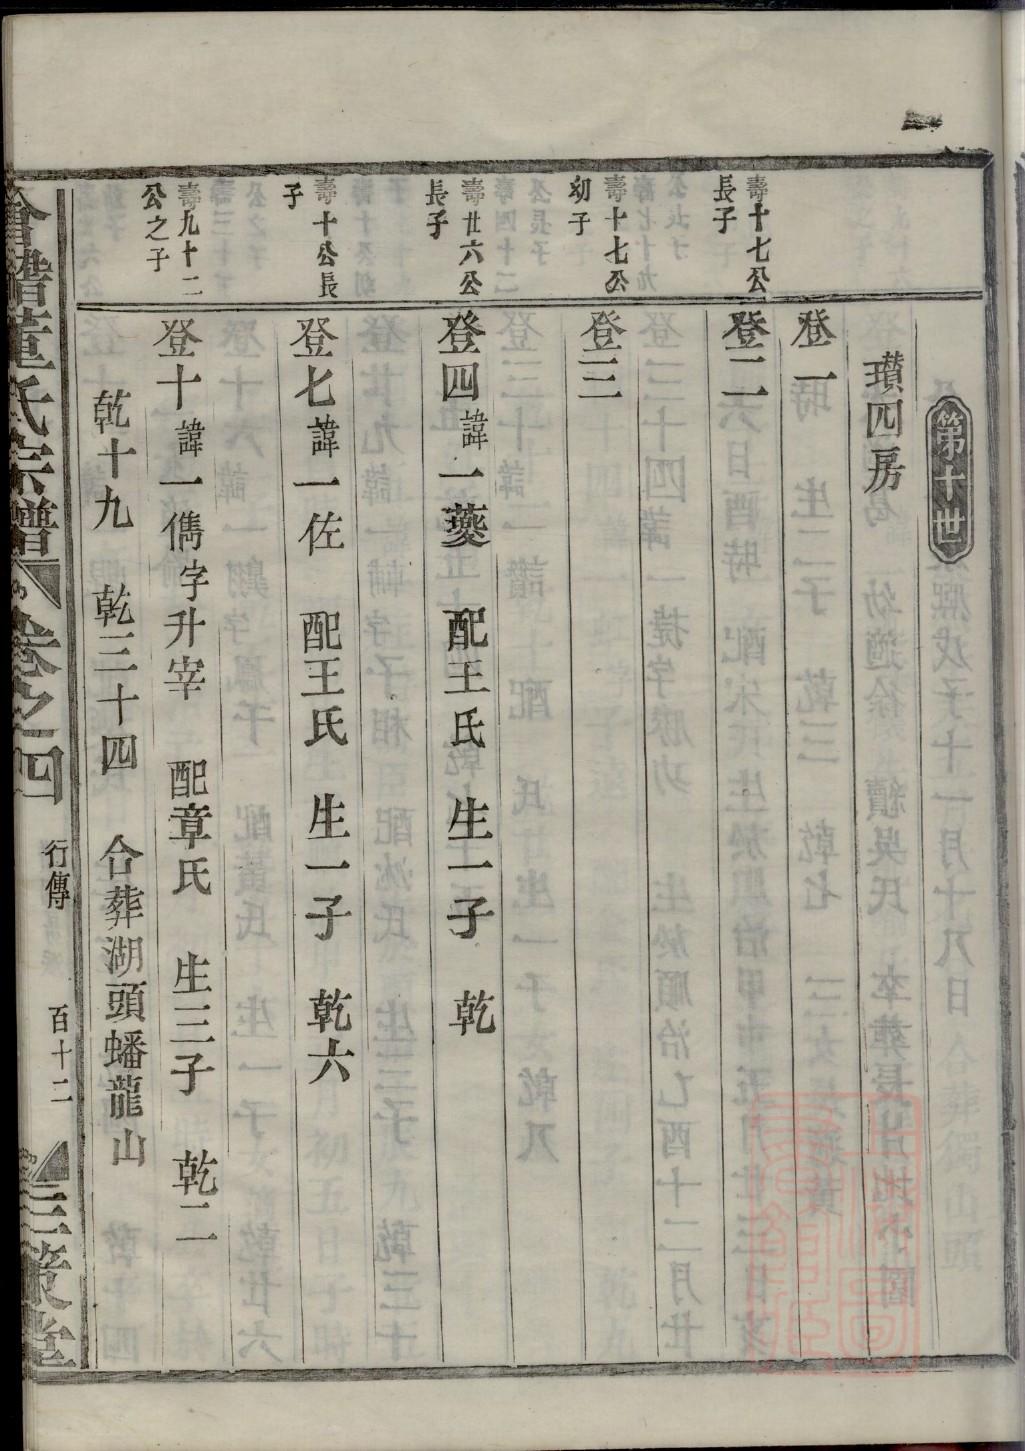 第十世
瓚四房
登一
壽十七公
長子
登二
壽十七公
幼子
登三
壽廿六公
長子
登四諱一夔　配王氏　生一子　乾
壽十公長
子
登七諱一佐　配王氏　生一子　乾六
壽九十二
公之子
登十諱一儁字升宰　配章氏　生三子　乾二
乾十九　乾三十四　合葬湖頭蟠龍山
會稽董氏宗譜　卷之四　行傳　百十二　三策堂